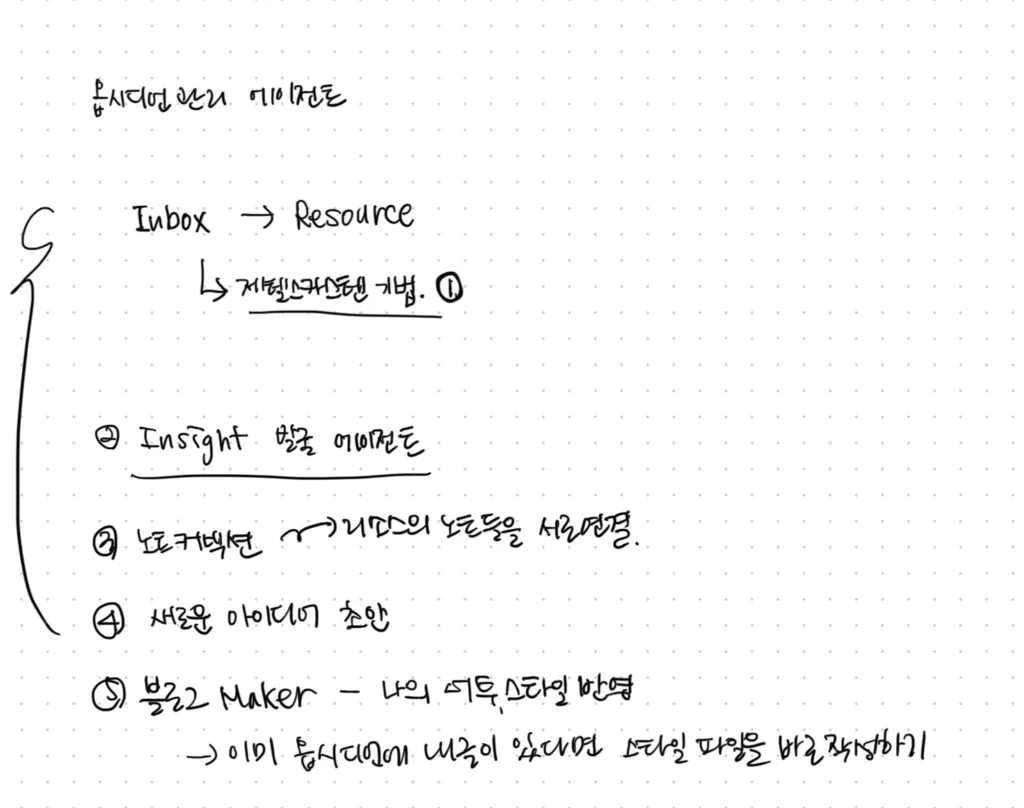 옵시디언 관리 에이전트
Inbox → Resource
↳ 제텔스카스텐 기법. ①
② Insight 발굴 에이전트
③ 노트커넥션 → 리소스의 노트들을 서로연결.
④ 새로운 아이디어 초안
⑤ 블로그 Maker - 나의 어투, 스타일 반영
→ 이미 옵시디언에 내글이 있다면 스타일 파일을 바로 작성하기